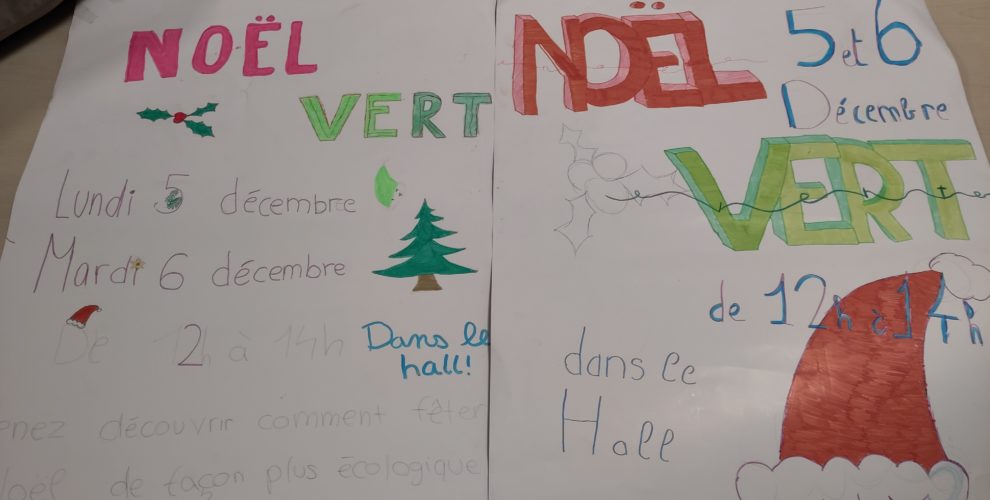 NOËL
VERT
Lundi 5 décembre
Mardi 6 décembre
De 12h à 14h
Dans le
hall!
enez découvrir comment fêter
oël de façon plus écologique
NOËL
5 et 6
Décembre
VERT
de 12h à 14h
dans le
Hall